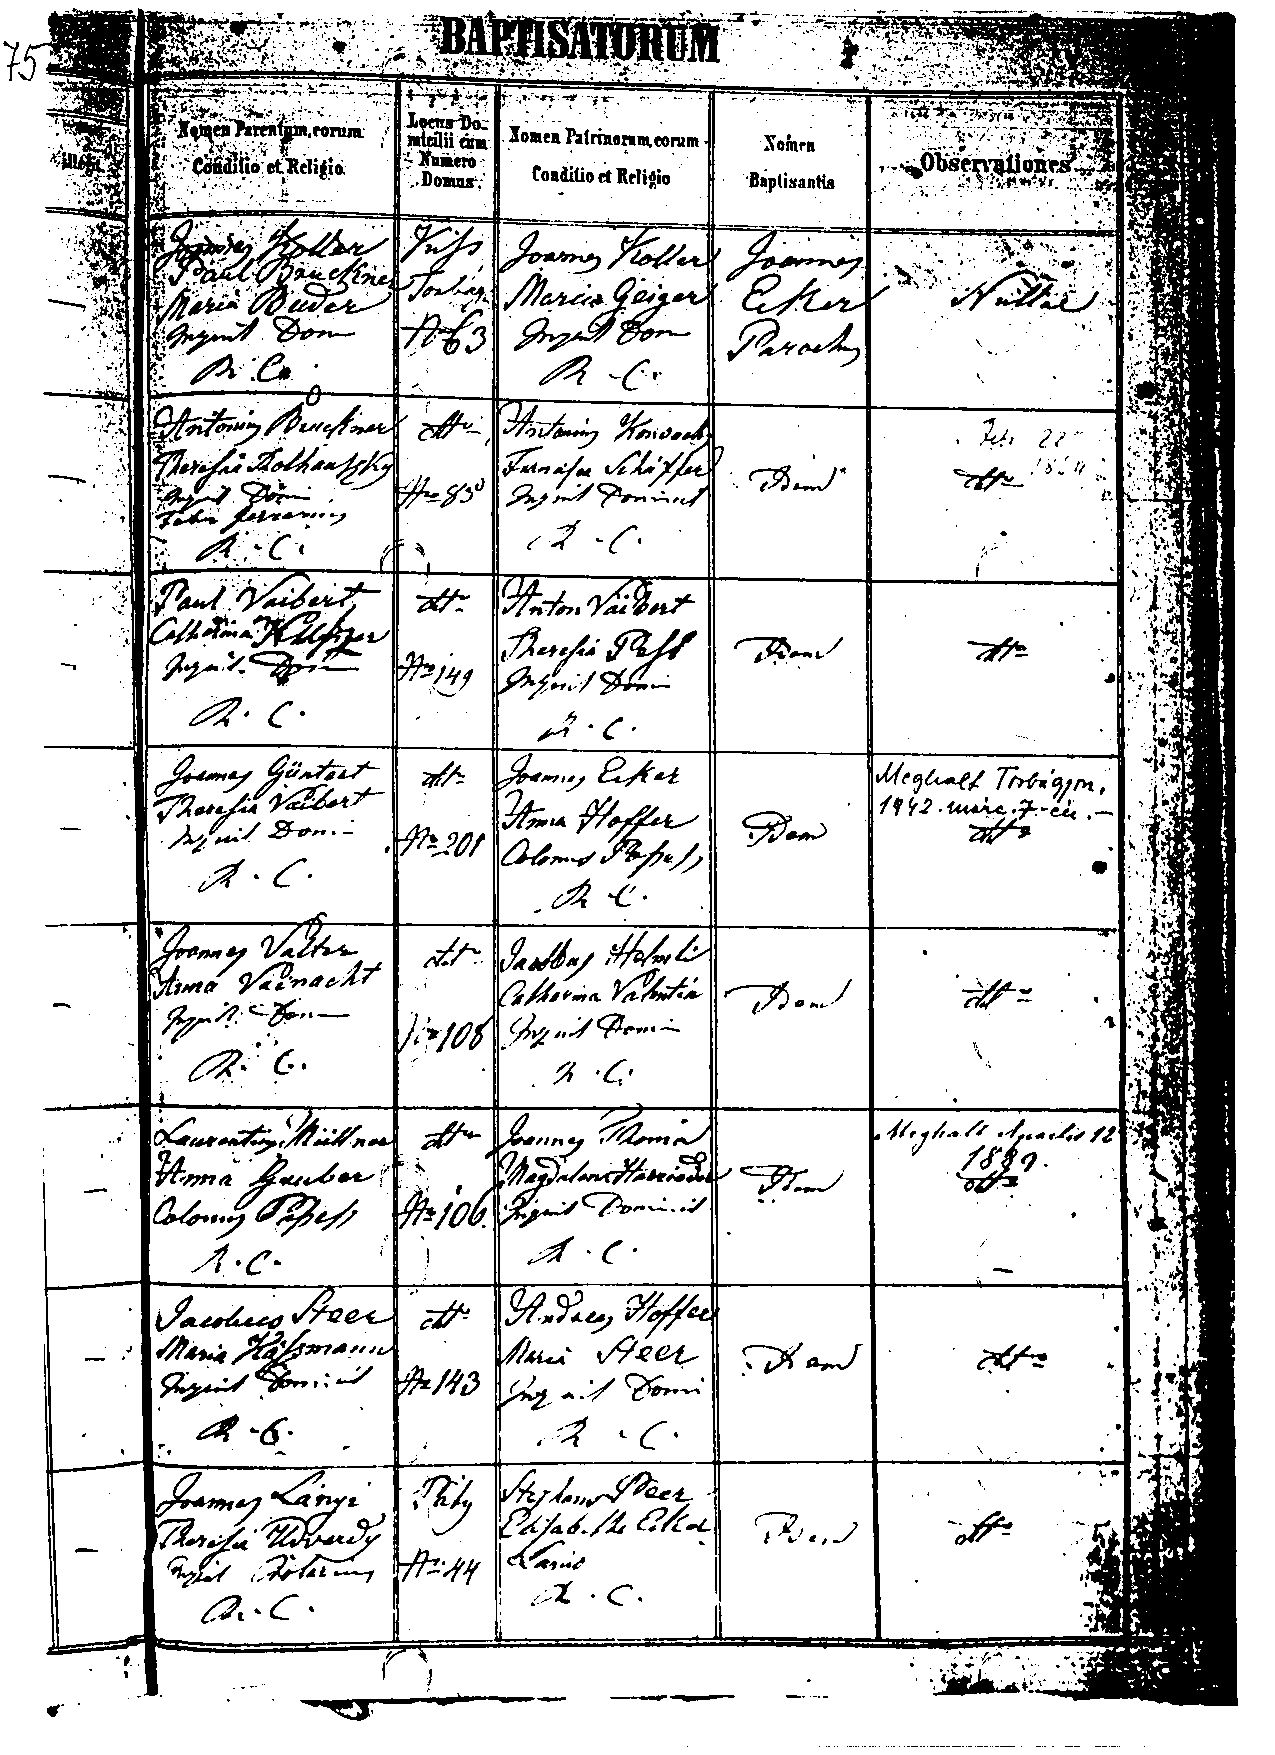 75
BAPTISATORUM
Nomen Parentum, eorum
Conditio et Religio
Locus Do-
micilii cum
Numero
Domus.
Nomen Patrinorum, eorum
Conditio et Religio
Nomen
Baptisantis
Observationes
Joannes Koller
Paul Bruckner
Maria Bader
Inquil Dom
R. C.
Kiss
Torbágy
No 63
Joannes Koller
Maria Geiger
Inquil Dom
R. C.
Joannes
Ecker
Parochus
Nullae
Antonius Bruckner
Theresia
Inquil Domi
R. C.
dtto
No 83
Antonius
Schäffer
Inquil Dominil
R. C.
Idem
dtto
Paul Vaibert
Catharina
Inquil. Domi
R. C.
dtto
No 149
Anton Vaibert
Theresia
Inquil Domi
R. C.
Idem
dtto
Joannes Güntert
Theresia Vaibert
Inquil Domi
R. C.
dtto
No 201
Joannes Ecker
Anna Hoffer
Colonus
R. C.
Idem
Meghalt Torbágyon,
1942. márc. 7-én.
dtto
Joannes Valter
Anna Vainacht
Inquil. Dom
R. C.
dtto
No 108
Jacobus
Catharina Valentin
Inquil Domin
R. C.
Idem
dtto
Laurentius Müllner
Anna Gruber
Colonus
R. C.
dtto
No 106
Joannes Thoma
Magdalena
Inquil Dominil
R. C.
Idem
Meghalt Aprilis 12
1889.
dtto
Jacobus Steer
Maria Hässmann
Inquil Dominil
R. C.
dtto
No 143
Andreas Hoffer
Maria Steer
Inquil Domi
R. C.
Idem
dtto
Joannes Lányi
Theresia Udvardy
Inquil
R. C.
Páty
No 44
Stephanus Steer
Elisabetha Ecker
R. C.
Idem
dtto